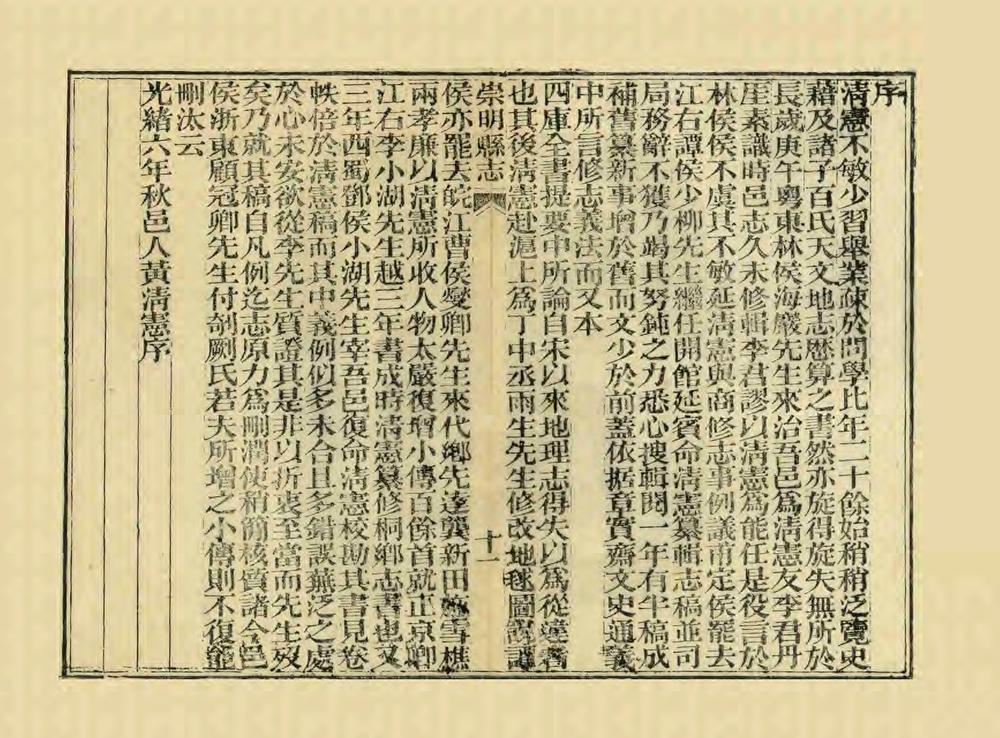 序
清憲不敏少習舉業疎於問學比年二十餘始稍稍泛覽史
藉及諸子百氏天文地志厯算之書然亦旋得旋失無所於
長歲庚午粵東林侯海巖先生來治吾邑為清憲友李君丹
厓素識時邑志久未修輯李君謬以清憲為能任是役言於
林侯侯不虞其不敏延清憲與商修志事例議甫定侯罷去
江右譚侯少柳先生繼任開館延賓命清憲纂輯志稿並司
局務辭不獲乃竭其努鈍之力悉心搜輯閱一年有半稿成
補舊纂新事增於舊而文少於前蓋依据章實齋文史通義
中所言修志義法而又本
四庫全書提要中所論自宋以來地理志得失以為從違耆
也其後清憲赴滬上為丁中丞雨生先生修改地球圖說譚
崇明縣志
十一
侯亦罷去皖江曹侯燮卿先生來代鄉先達龔新田 雪樵
兩孝廉以清憲所收人物太嚴復增小傳百餘首就正京卿
江右李小湖先生越三年書成時清憲纂修桐鄉志書也又
三年西蜀鄧侯小湖先生宰吾邑復命清憲校勘其書見卷
軼倍於清憲稿而其中義例似多未合且多錯誤蕪泛之處
於心未安欲從李先生質證其是非以折衷至當而先生歿
矣乃就其稿自凡例迄志原力為刪潤使稍簡核質諸今邑
侯浙東顧冠卿先生付剞劂氏若夫所增之小傳則不復能
刪汰云
光緒六年秋邑人黃清憲序